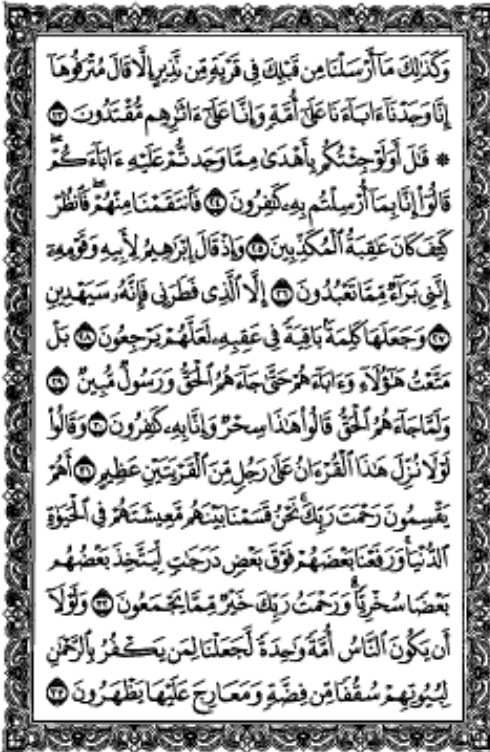 وَكَذَٰلِكَ مَآ أَرْسَلْنَا مِن قَبْلِكَ فِى قَرْيَةٍ مِّن نَّذِيرٍ إِلَّا قَالَ مُتْرَفُوهَآ
إِنَّا وَجَدْنَآ ءَابَآءَنَا عَلَىٰٓ أُمَّةٍ وَإِنَّا عَلَىٰٓ ءَاثَٰرِهِم مُّقْتَدُونَ ٢٣
۞ قَٰلَ أَوَلَوْ جِئْتُكُم بِأَهْدَىٰ مِمَّا وَجَدتُّمْ عَلَيْهِ ءَابَآءَكُمْ ۖ
قَالُوٓا۟ إِنَّا بِمَآ أُرْسِلْتُم بِهِۦ كَٰفِرُونَ ٢٤ فَٱنتَقَمْنَا مِنْهُمْ ۖ فَٱنظُرْ
كَيْفَ كَانَ عَٰقِبَةُ ٱلْمُكَذِّبِينَ ٢٥ وَإِذْ قَالَ إِبْرَٰهِيمُ لِأَبِيهِ وَقَوْمِهِۦٓ
إِنَّنِى بَرَآءٌ مِّمَّا تَعْبُدُونَ ٢٦ إِلَّا ٱلَّذِى فَطَرَنِى فَإِنَّهُۥ سَيَهْدِينِ
٢٧ وَجَعَلَهَا كَلِمَةًۢ بَاقِيَةً فِى عَقِبِهِۦ لَعَلَّهُمْ يَرْجِعُونَ ٢٨ بَلْ
مَتَّعْتُ هَٰٓؤُلَآءِ وَءَابَآءَهُمْ حَتَّىٰ جَآءَهُمُ ٱلْحَقُّ وَرَسُولٌ مُّبِينٌ ٢٩
وَلَمَّا جَآءَهُمُ ٱلْحَقُّ قَالُوا۟ هَٰذَا سِحْرٌ وَإِنَّا بِهِۦ كَٰفِرُونَ ٣٠ وَقَالُوا۟
لَوْلَا نُزِّلَ هَٰذَا ٱلْقُرْءَانُ عَلَىٰ رَجُلٍ مِّنَ ٱلْقَرْيَتَيْنِ عَظِيمٍ ٣١ أَهُمْ
يَقْسِمُونَ رَحْمَتَ رَبِّكَ ۚ نَحْنُ قَسَمْنَا بَيْنَهُم مَّعِيشَتَهُمْ فِى ٱلْحَيَوٰةِ
ٱلدُّنْيَا ۚ وَرَفَعْنَا بَعْضَهُمْ فَوْقَ بَعْضٍ دَرَجَٰتٍ لِّيَتَّخِذَ بَعْضُهُم
بَعْضًا سُخْرِيًّا ۗ وَرَحْمَتُ رَبِّكَ خَيْرٌ مِّمَّا يَجْمَعُونَ ٣٢ وَلَوْلَآ
أَن يَكُونَ ٱلنَّاسُ أُمَّةً وَٰحِدَةً لَّجَعَلْنَا لِمَن يَكْفُرُ بِٱلرَّحْمَٰنِ
لِبُيُوتِهِمْ سُقُفًا مِّن فِضَّةٍ وَمَعَارِجَ عَلَيْهَا يَظْهَرُونَ ٣٣